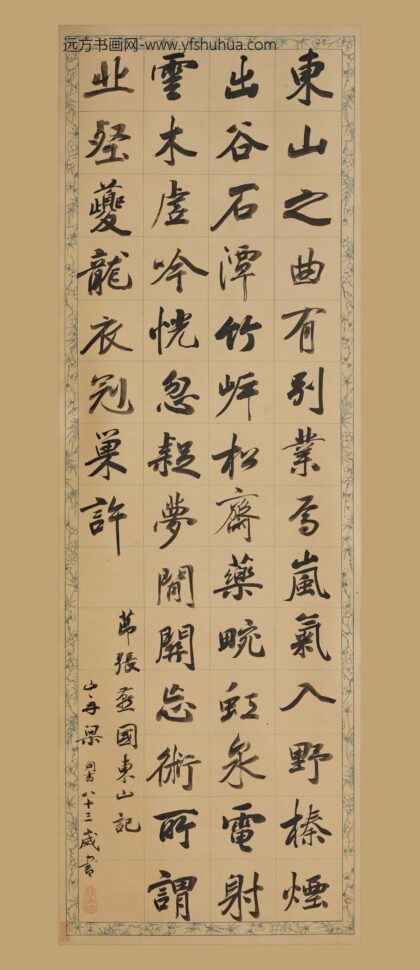 远方书画网-www.yfshuhua.com
東山之曲有別業焉嵐氣入野榛煙
出谷石潭竹岍松齋藥畹虹泉電射
雲木虛吟恍忽疑夢閒關忘術所謂
丘壑夔龍衣冠巢許
節張燕國東山記
山舟梁同書八十三歲書